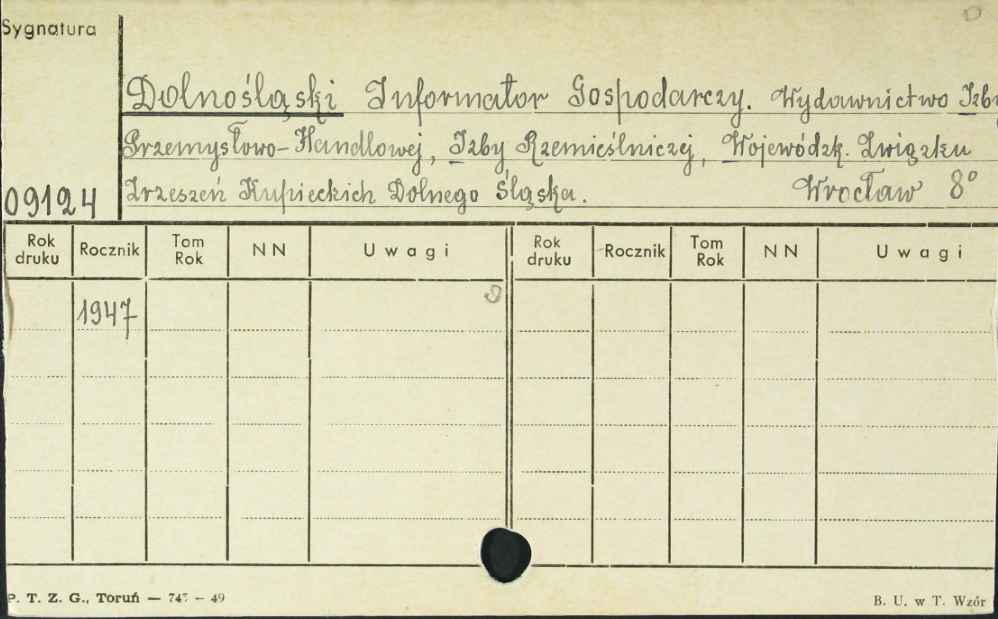 Sygnatura
Dolnośląski Informator Gospodarczy. Wydawnictwo Izby
Przemysłowo-Handlowej, Izby Rzemieślniczej, Wojewódzk. Związku
09124 Zrzeszeń Kupieckich Dolnego Śląska. Wrocław 8°
Rok druku Rocznik Tom Rok NN Uwagi Rok druku Rocznik Tom Rok NN Uwagi
1947
P. T. Z. G., Toruń — 747 — 49 B. U. w T. Wzór